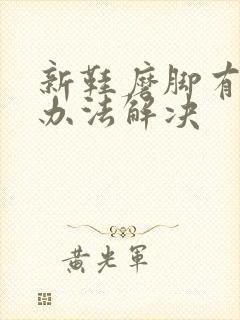 新鞋磨脚有
办法解决
黄光军